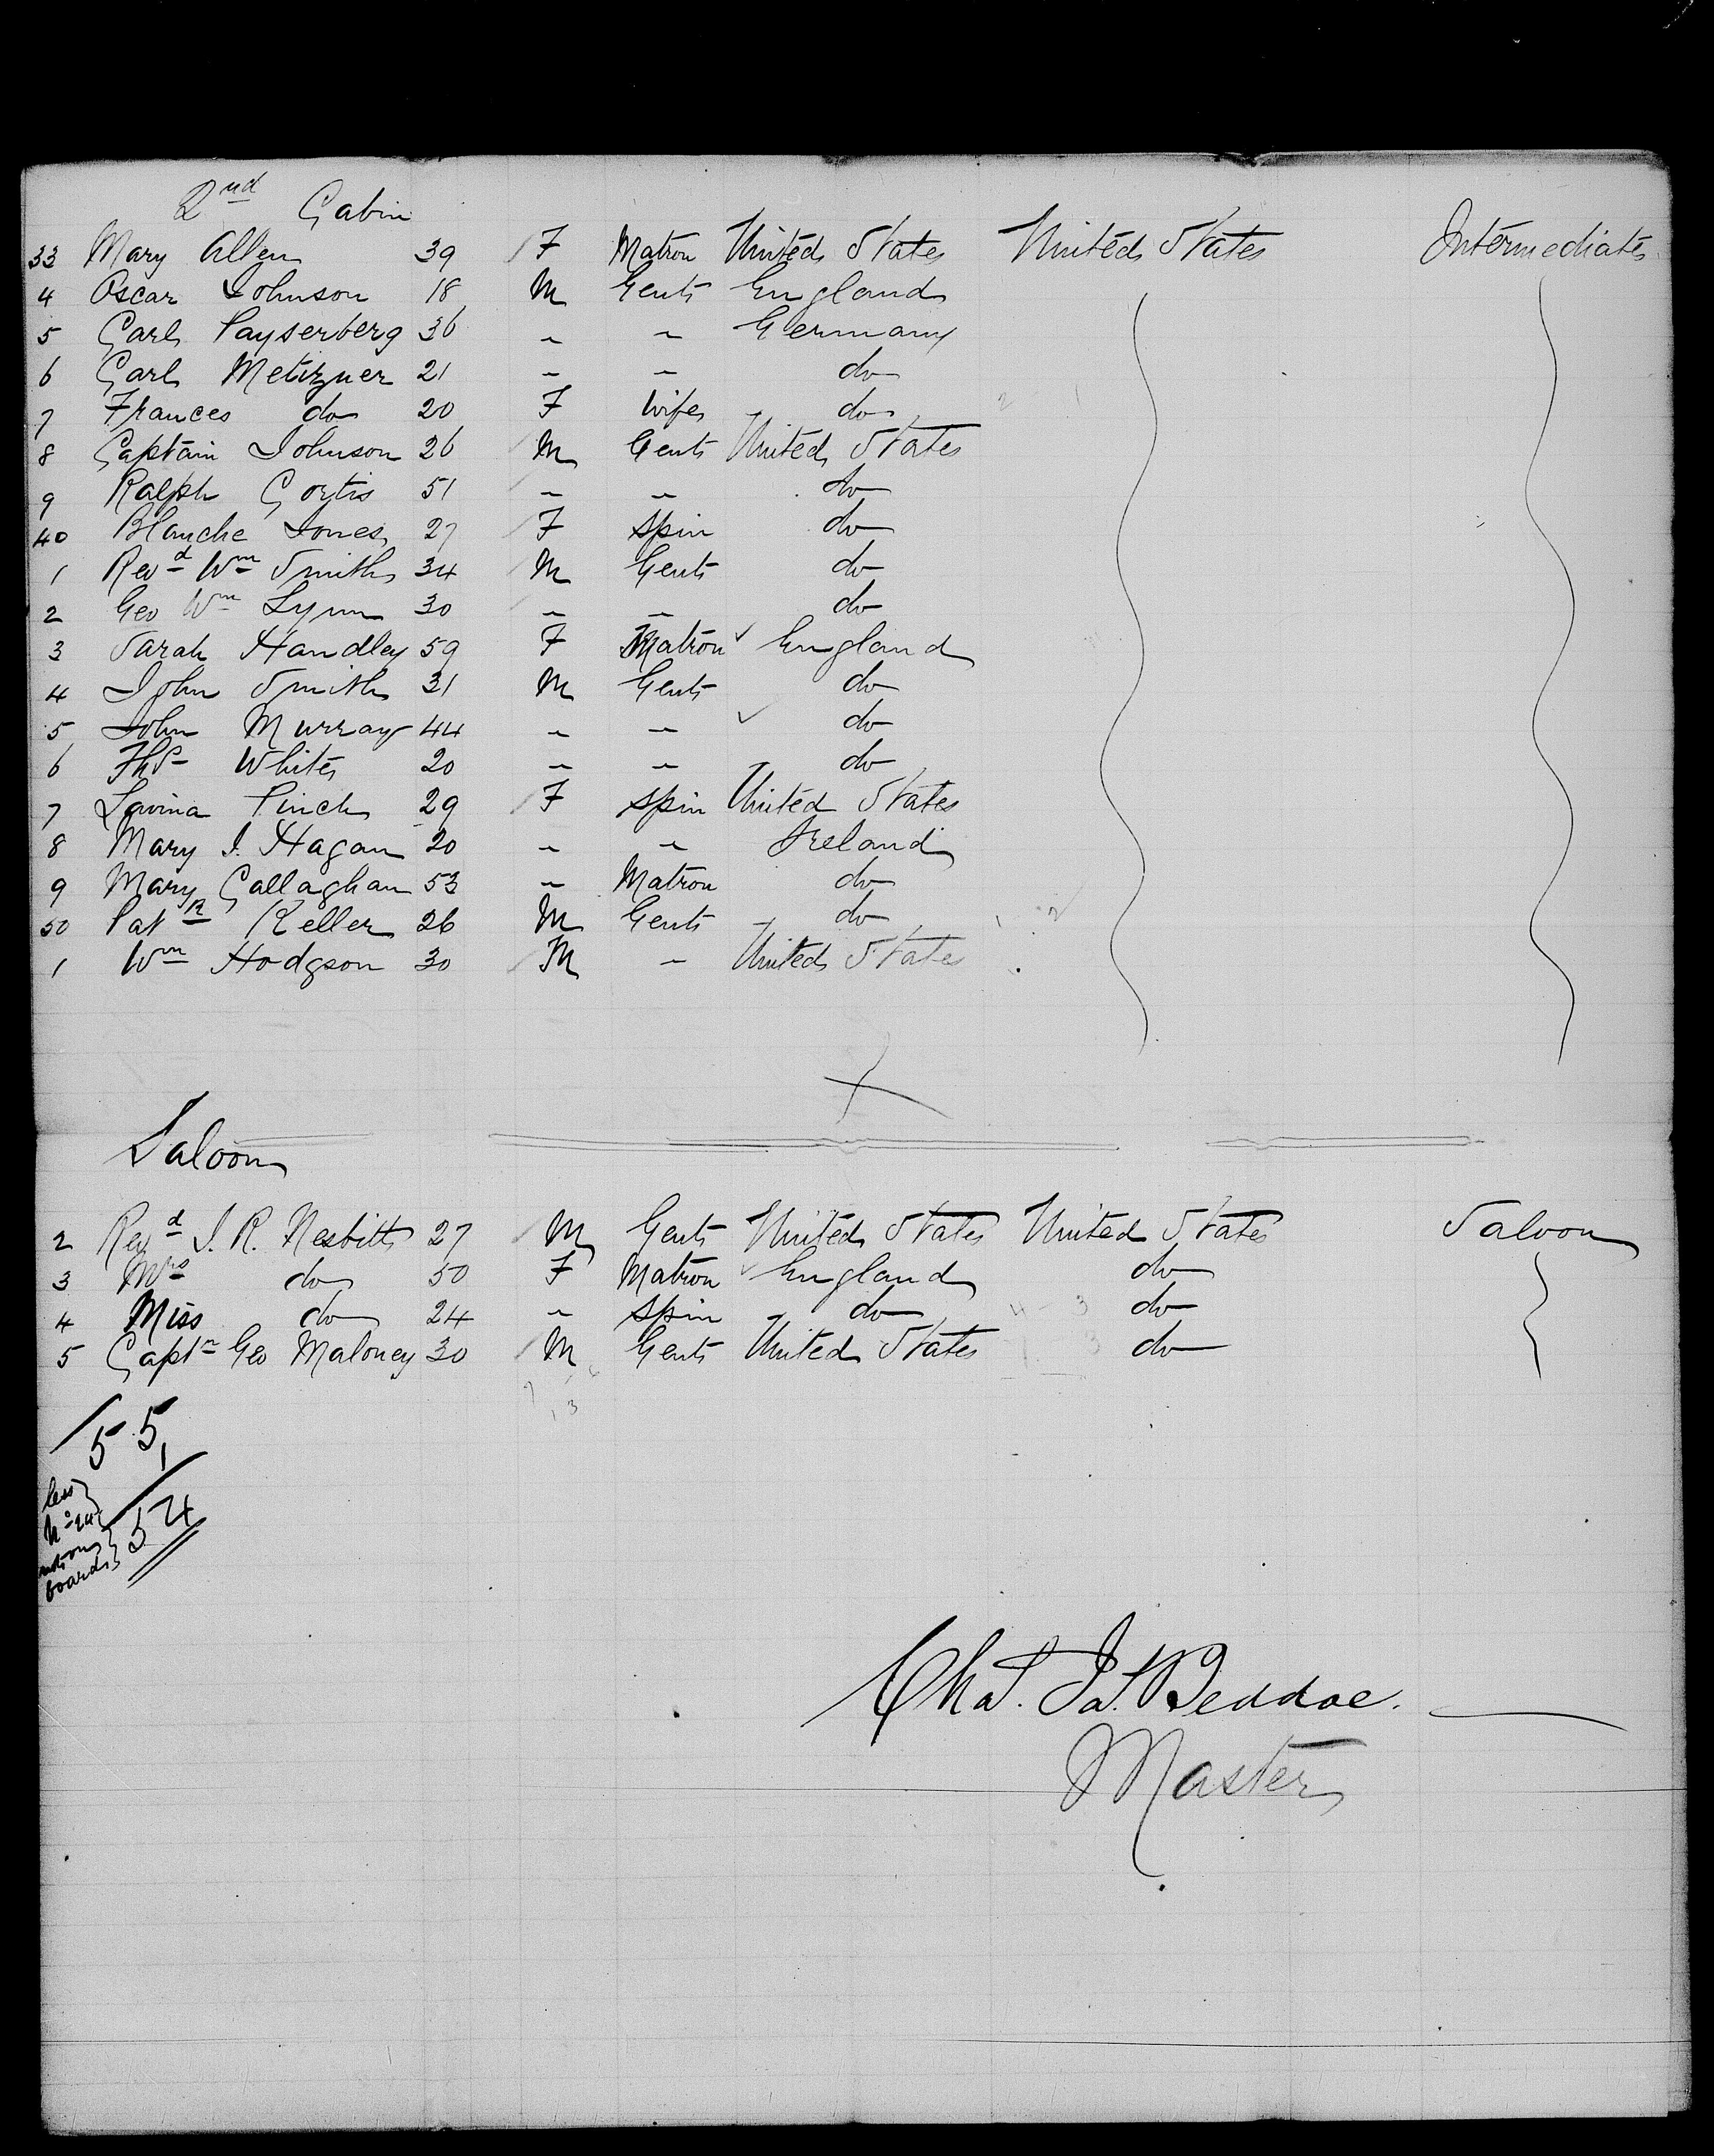 2nd Cabin
33 Mary Allen 39 F Matron United States United States Intermediate
4 Oscar Johnson 18 M Gent England
5 Carl Payserberg 36 " " Germany
6 Carl Metizner 21 " " do
7 Frances do 20 F Wife do
8 Captain Johnson 26 M Gent United States
9 Ralph Cortis 51 " " do
40 Blanche Jones 27 F Spin do
1 Revd Wm Smith 34 M Gent do
2 Geo Wm Lynn 30 " " do
3 Sarah Handley 59 F Matron England
4 John Smith 31 M Gent do
5 John Murray 44 " " do
6 Thos White 20 " " do
7 Lavina Pinch 29 F Spin United States
8 Mary J. Hagan 20 " " Ireland
9 Mary Callaghan 53 " Matron do
50 Patk Keller 26 M Gent do
1 Wm Hodgson 30 M " United State
Saloon
2 Revd J. R. Nesbitt 27 M Gent United States United States Saloon
3 Mrs do 50 F Matron England do
4 Miss do 24 " Spin do do
5 Captn Geo Maloney 30 M Gent United States do
55
1
less
No 24
not on
board
54
Chas. Jas. Beddoe.
Master